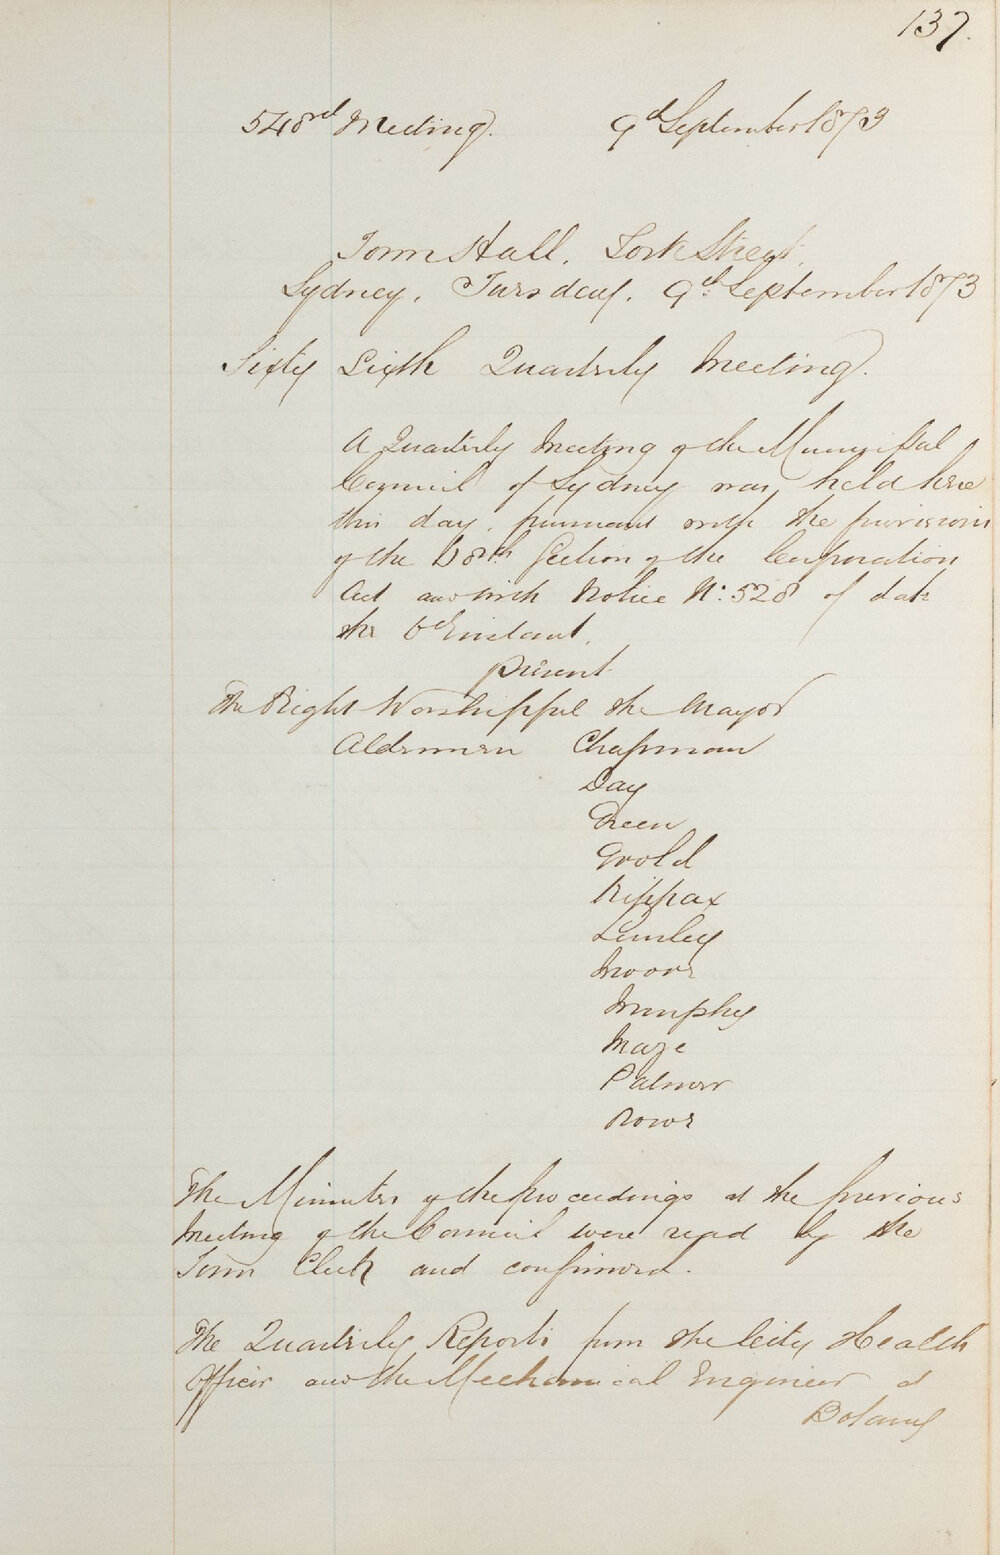 137.
548rd Meeting. 9d September 1873
Town Hall, York Street,
Sydney, Tuesday, 9d. September 1873
Sixty Sixth Quarterly Meeting.
A Quarterly Meeting of the Municipal
Council of Sydney was held here
this day, pursuant with the provisions
of the 68th Section of the Corporation
Act and with Notice No. 528 of date
the 6d Instant.
Present
The Right Worshipful the Mayor
Aldermen Chapman
Day
Green
Kippax
Lumley
Moore
Murphy
Maze
Palmer
Rowe
The Minutes of the proceedings at the previous
Meeting of the Council were read by the
Town Clerk and confirmed.
The Quarterly Reports from the City Health
Officer and the Mechanical Engineer at
Botany